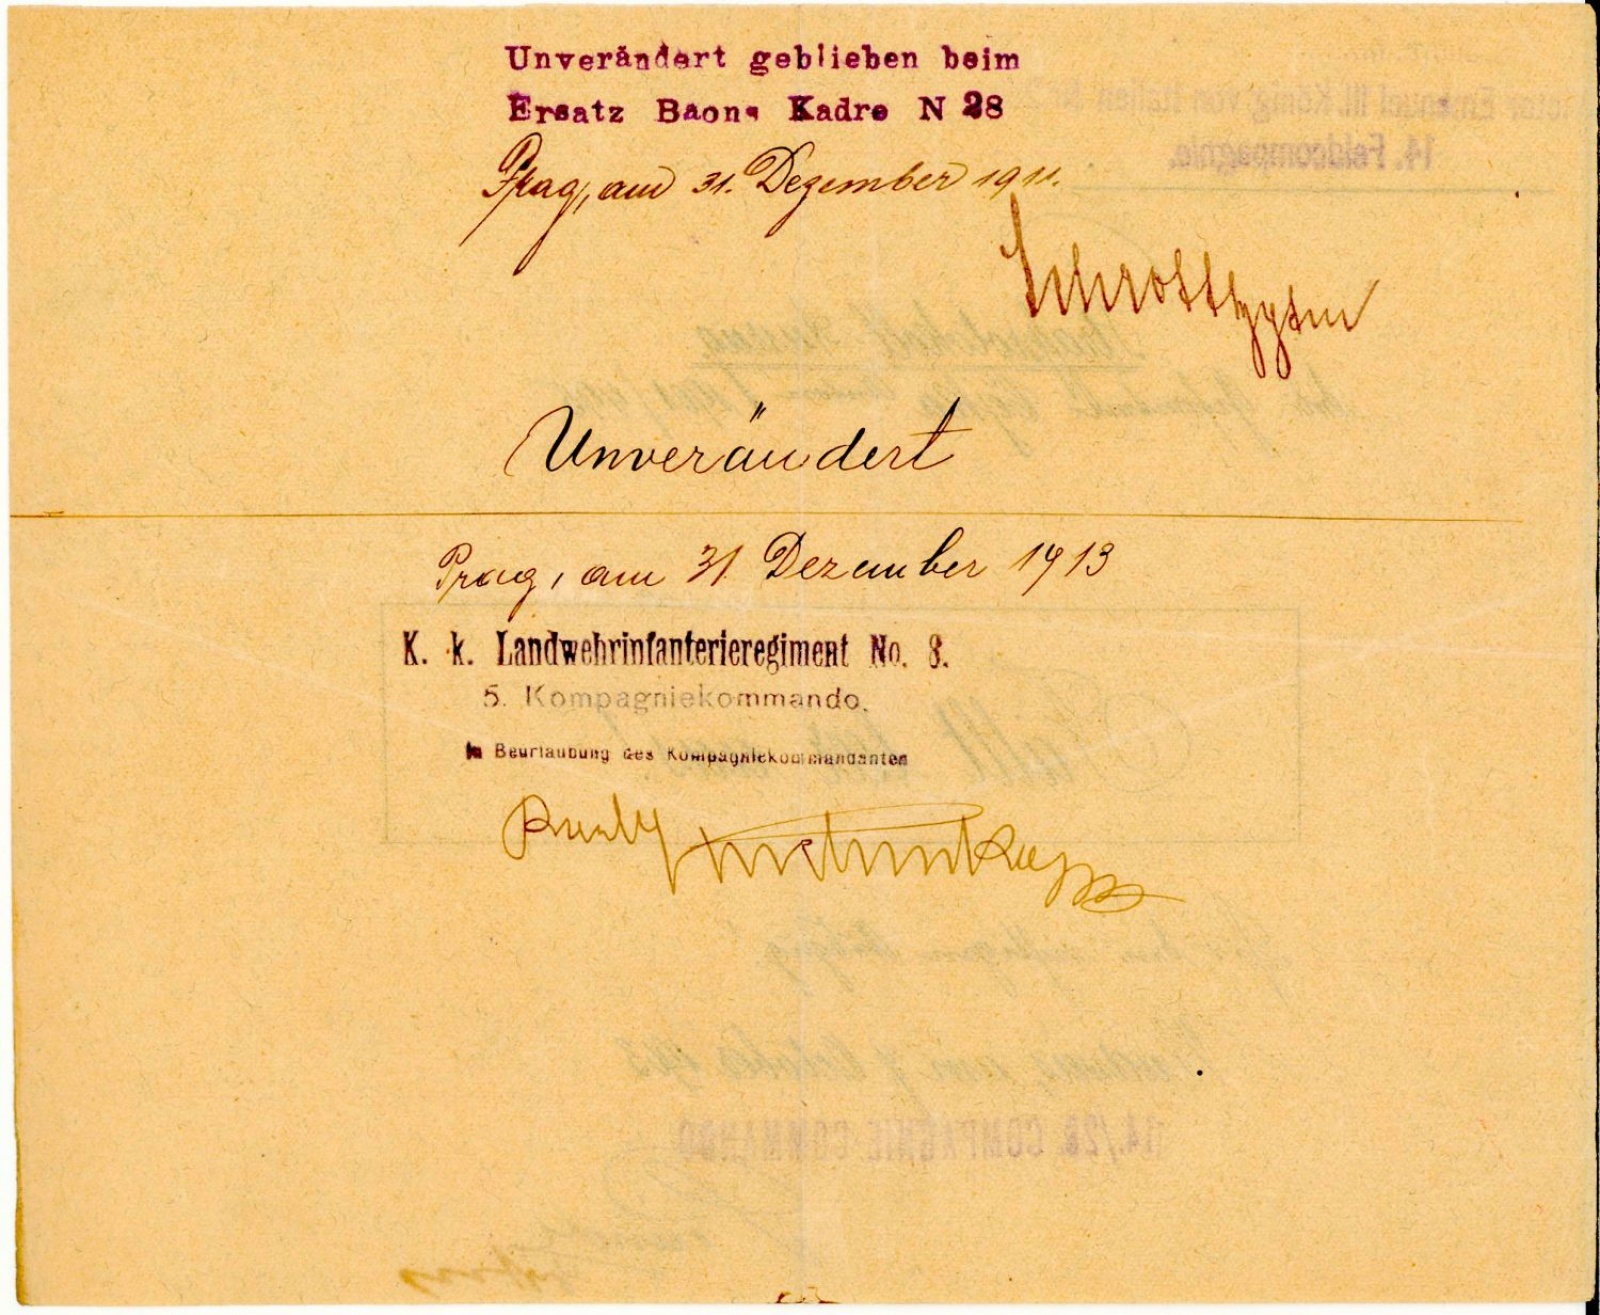 Unverändert geblieben beim
Ersatz Baons Kadre N 28
Prag, am 31. Dezember 1911.
Unverändert
Prag, am 31 Dezember 1913
K. k. Landwehrinfanterieregiment No. 8.
5. Kompagniekommando.
In Beurlaubung des Kompagniekommandanten